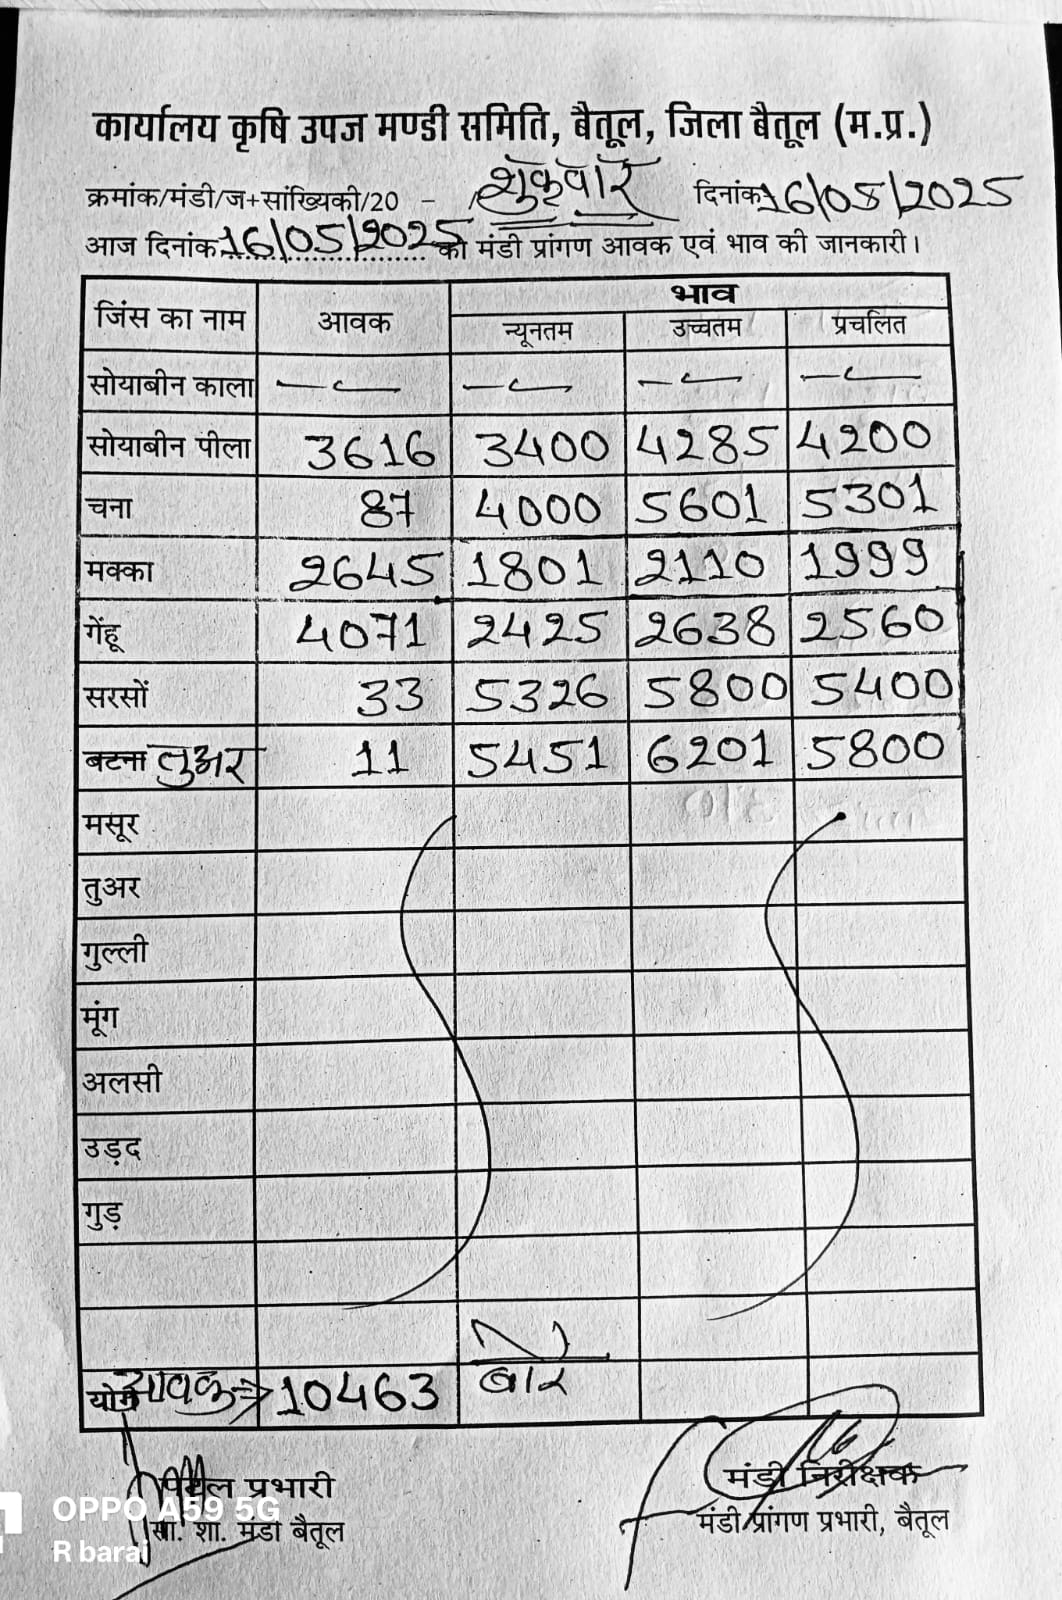 कार्यालय कृषि उपज मण्डी समिति, बैतूल, जिला बैतूल (म.प्र.)
क्रमांक/मंडी/ज+सांख्यिकी/20 - शुक्रवार दिनांक 16/05/2025
आज दिनांक 16/05/2025 को मंडी प्रांगण आवक एवं भाव की जानकारी।
जिंस का नाम आवक भाव
न्यूनतम उच्चतम प्रचलित
सोयाबीन काला — — — —
सोयाबीन पीला 3616 3400 4285 4200
चना 87 4000 5601 5301
मक्का 2645 1801 2110 1999
गेंहू 4071 2425 2638 2560
सरसों 33 5326 5800 5400
बटना तुअर 11 5451 6201 5800
मसूर
तुअर
गुल्ली
मूंग
अलसी
उड़द
गुड़
योग आवक⇒ 10463 बोरे
पटल प्रभारी मंडी निरीक्षक
सां. शा. मंडी बैतूल मंडी प्रांगण प्रभारी, बैतूल
OPPO A59 5G
R barai